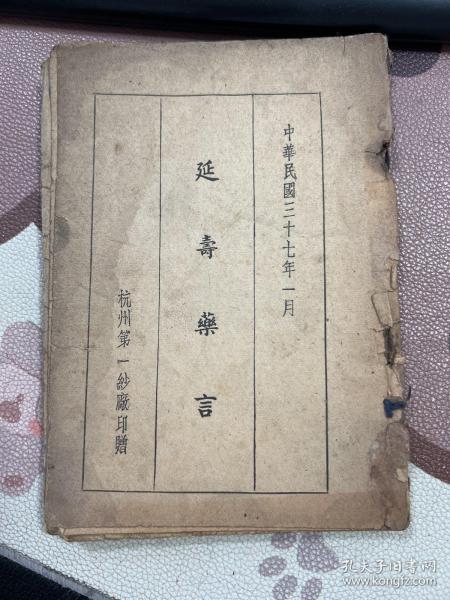 中華民國三十七年一月
延壽藥言
杭州第一紗廠印贈
孔夫子旧书网
www.kongfz.com